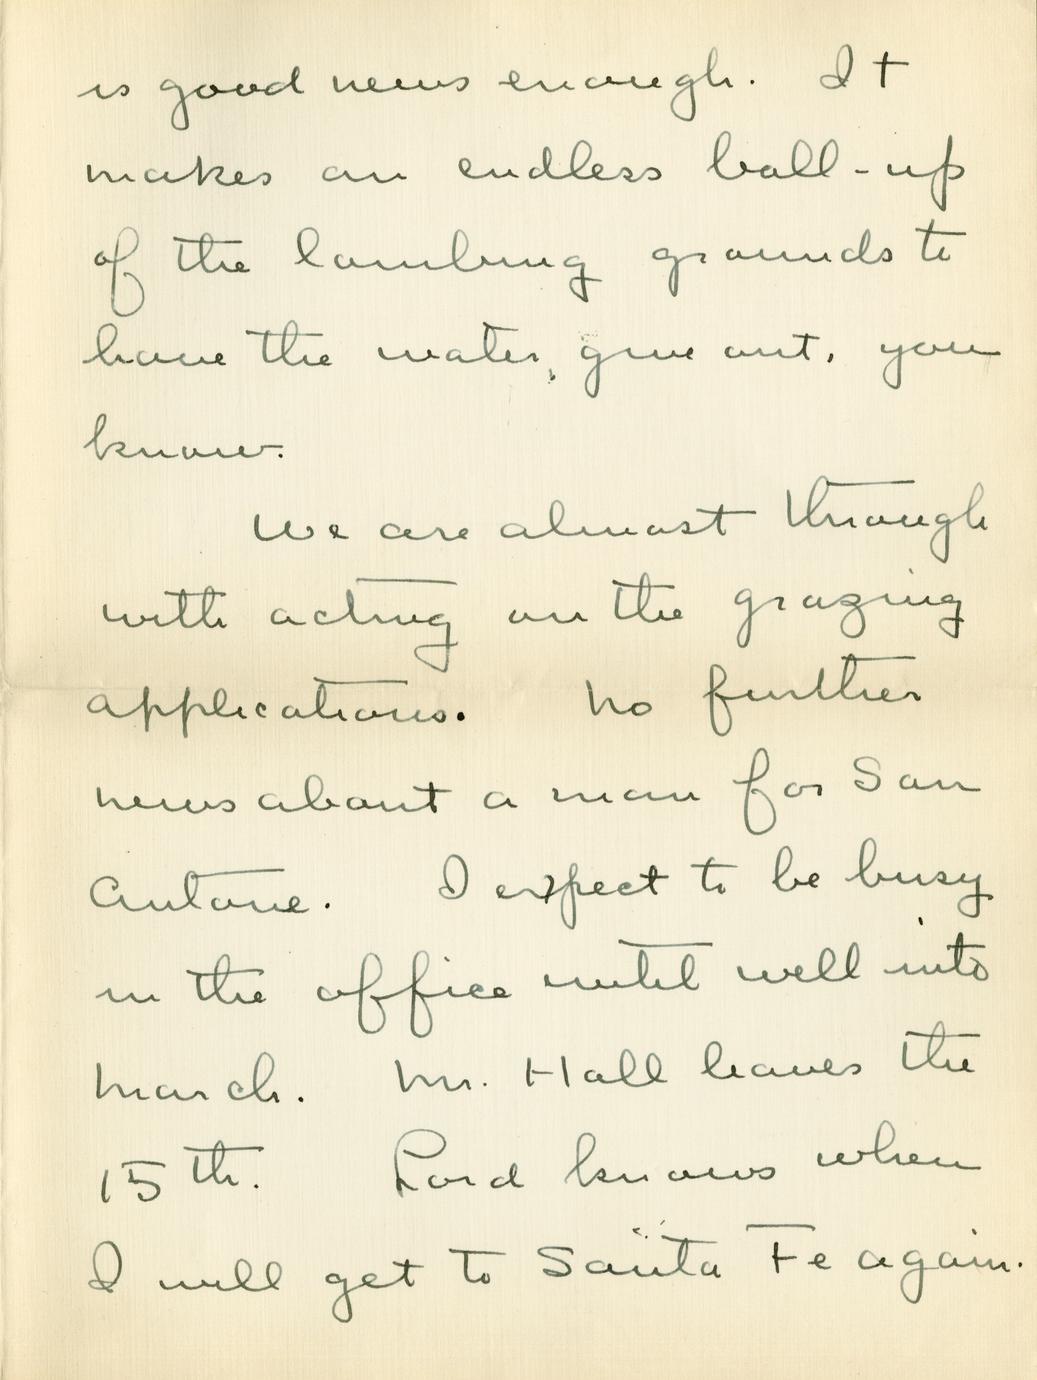 is good news enough. It
makes an endless ball-up
of the lambing grounds to
have the water give out, you
know.
We are almost through
with acting on the grazing
applications. No further
news about a man for San
Antone. I expect to be busy
in the office until well into
March. Mr. Hall leaves the
15th. Lord knows when
I will get to Santa Fe again.